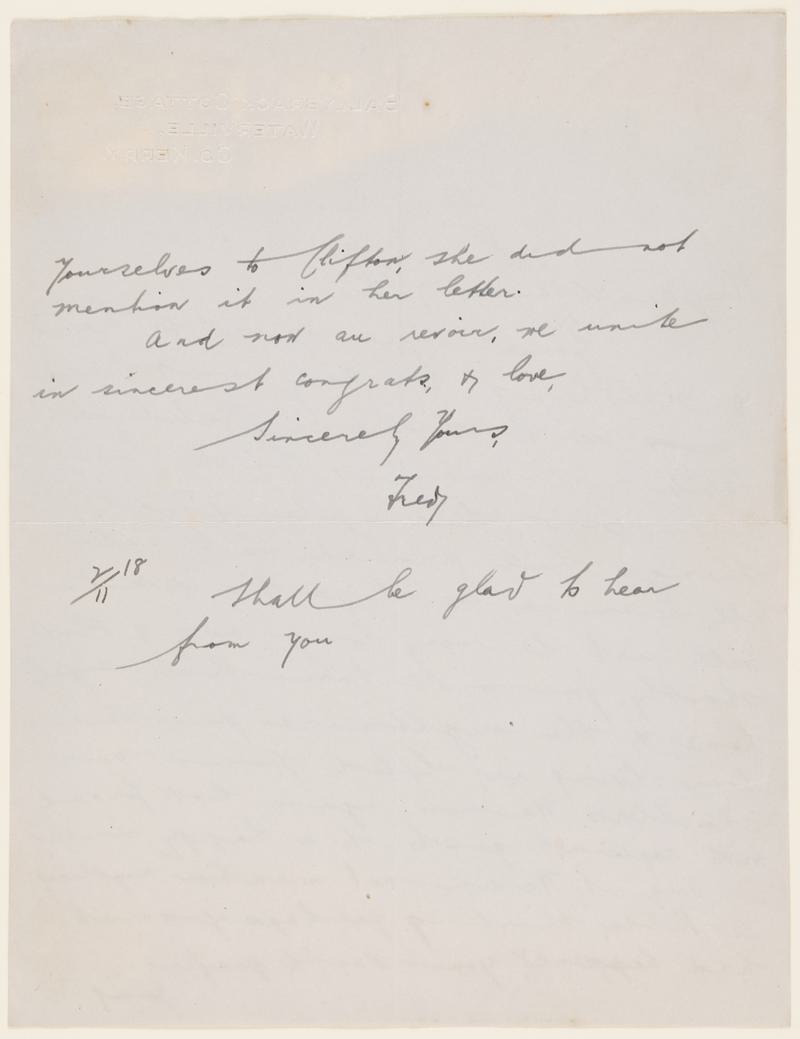 BALLYBRACK COTTAGE,
WATERVILLE,
CO. KERRY.
yourselves to Clifton, she did not
mention it in her letter.
And now au revoir, we unite
in sincerest congrats, & love,
Sincerely Yours,
Fred
2/11 18
Shall be glad to hear
from you